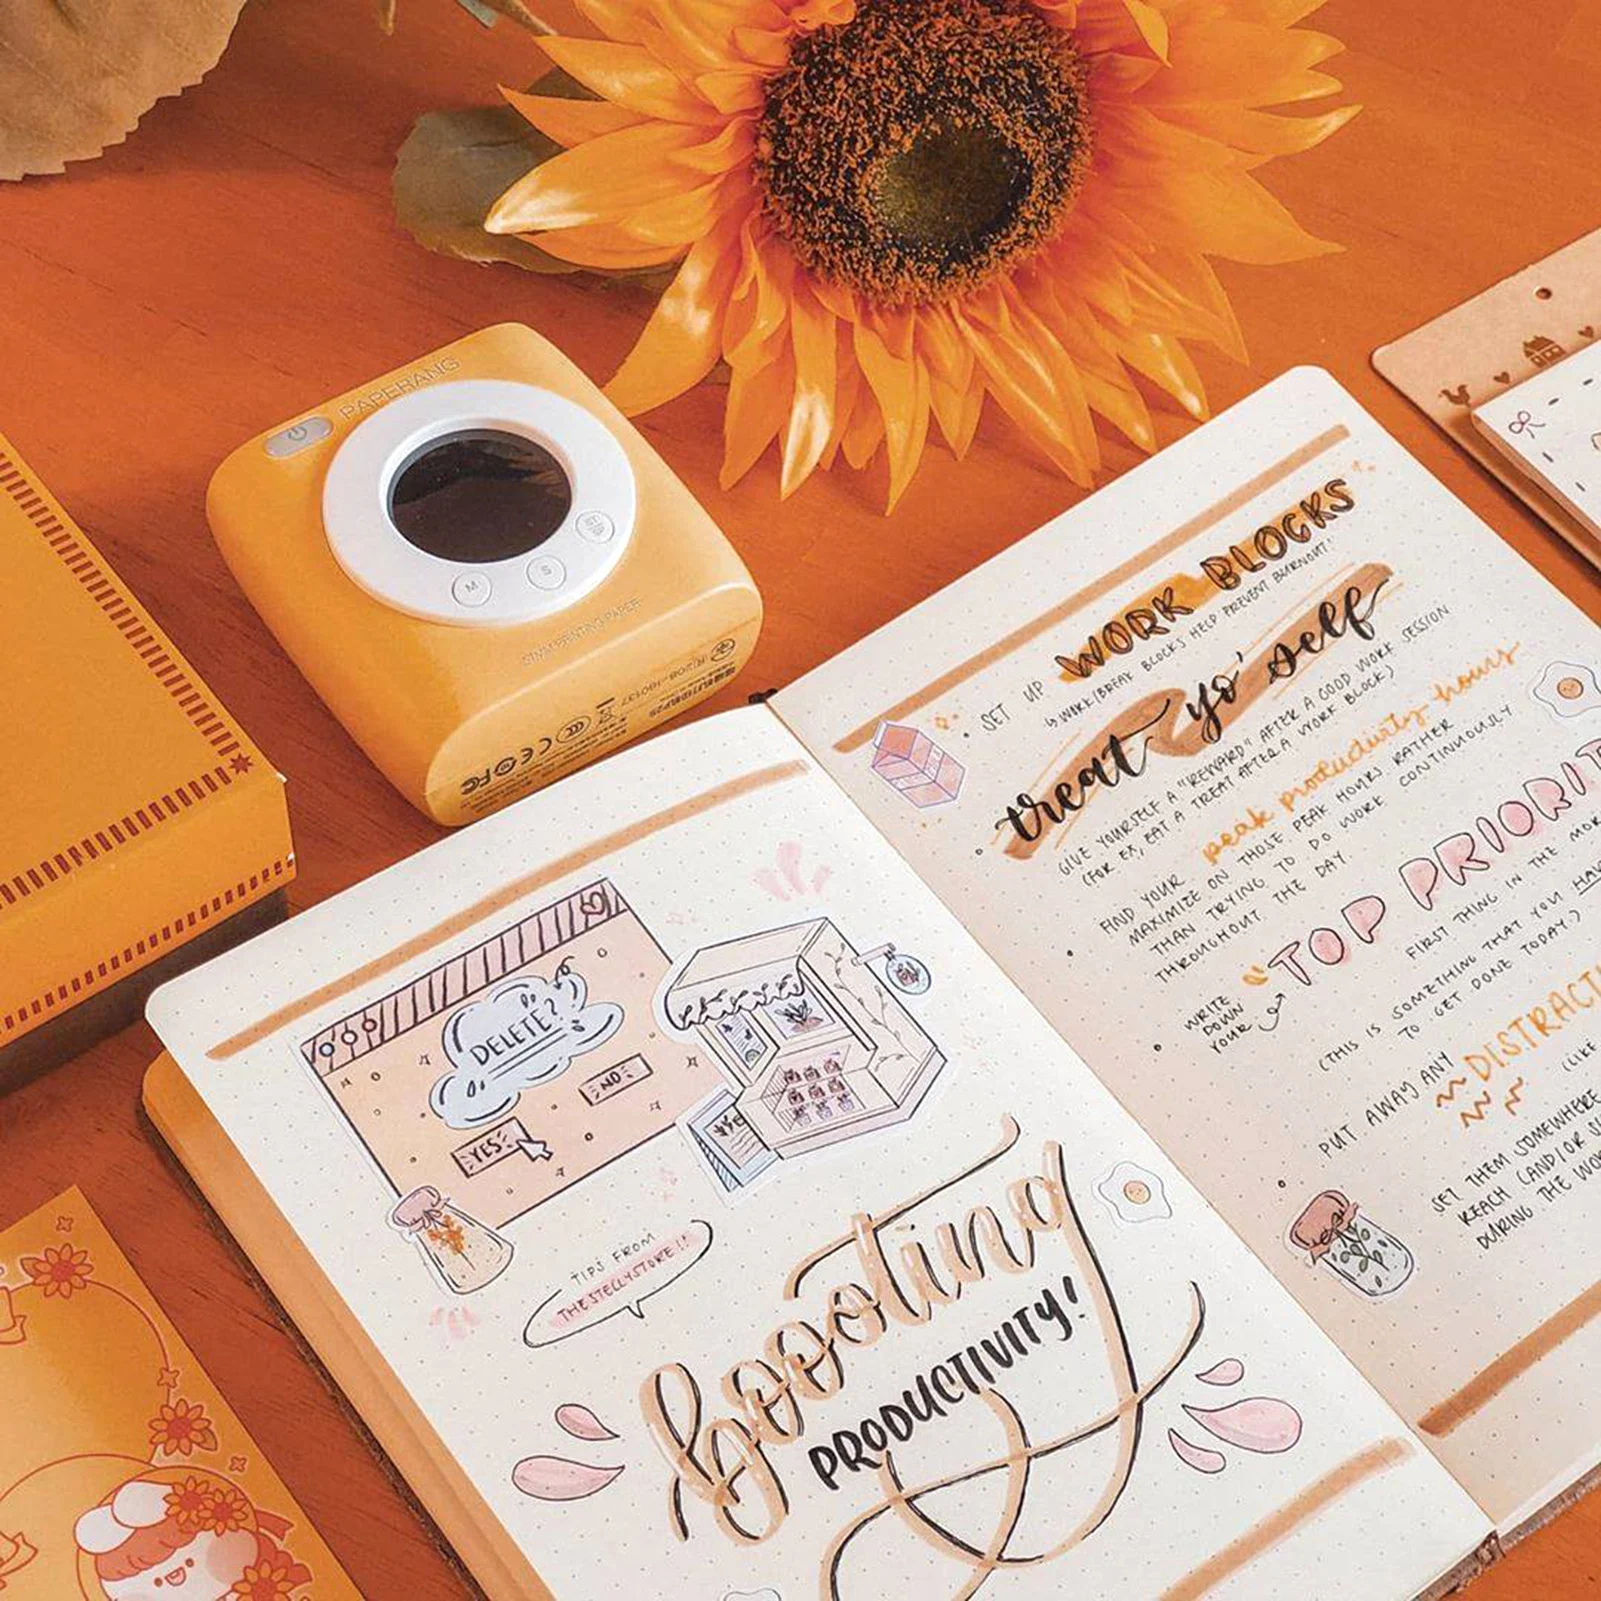 PAPERANG
M
S
57MM PRINTING PAPER
CE
FC
DELETE?
NO
YES
TIPS FROM
THESTECLYSTORE!!
boosting
PRODUCTIVITY!
SET UP WORK BLOCKS
WORK/BREAK BLOCKS HELP PREVENT BURNOUT!
treat yo' self
GIVE YOURSELF A "REWARD" AFTER A GOOD WORK SESSION
(FOR EX, EAT A TREAT AFTER A WORK BLOCK)
FIND YOUR peak productivity hours
MAXIMIZE ON THOSE PEAK HOURS RATHER
THAN TRYING TO DO WORK CONTINUOUSLY
THROUGHOUT THE DAY.
WRITE
DOWN
YOUR
TOP
FIRST THING IN THE
(THIS IS SOMETHING THAT YOU
TO GET DONE TODAY)
PUT AWAY ANY
SET THEM SOMEWHERE
REACH (AND/OR
DURING THE